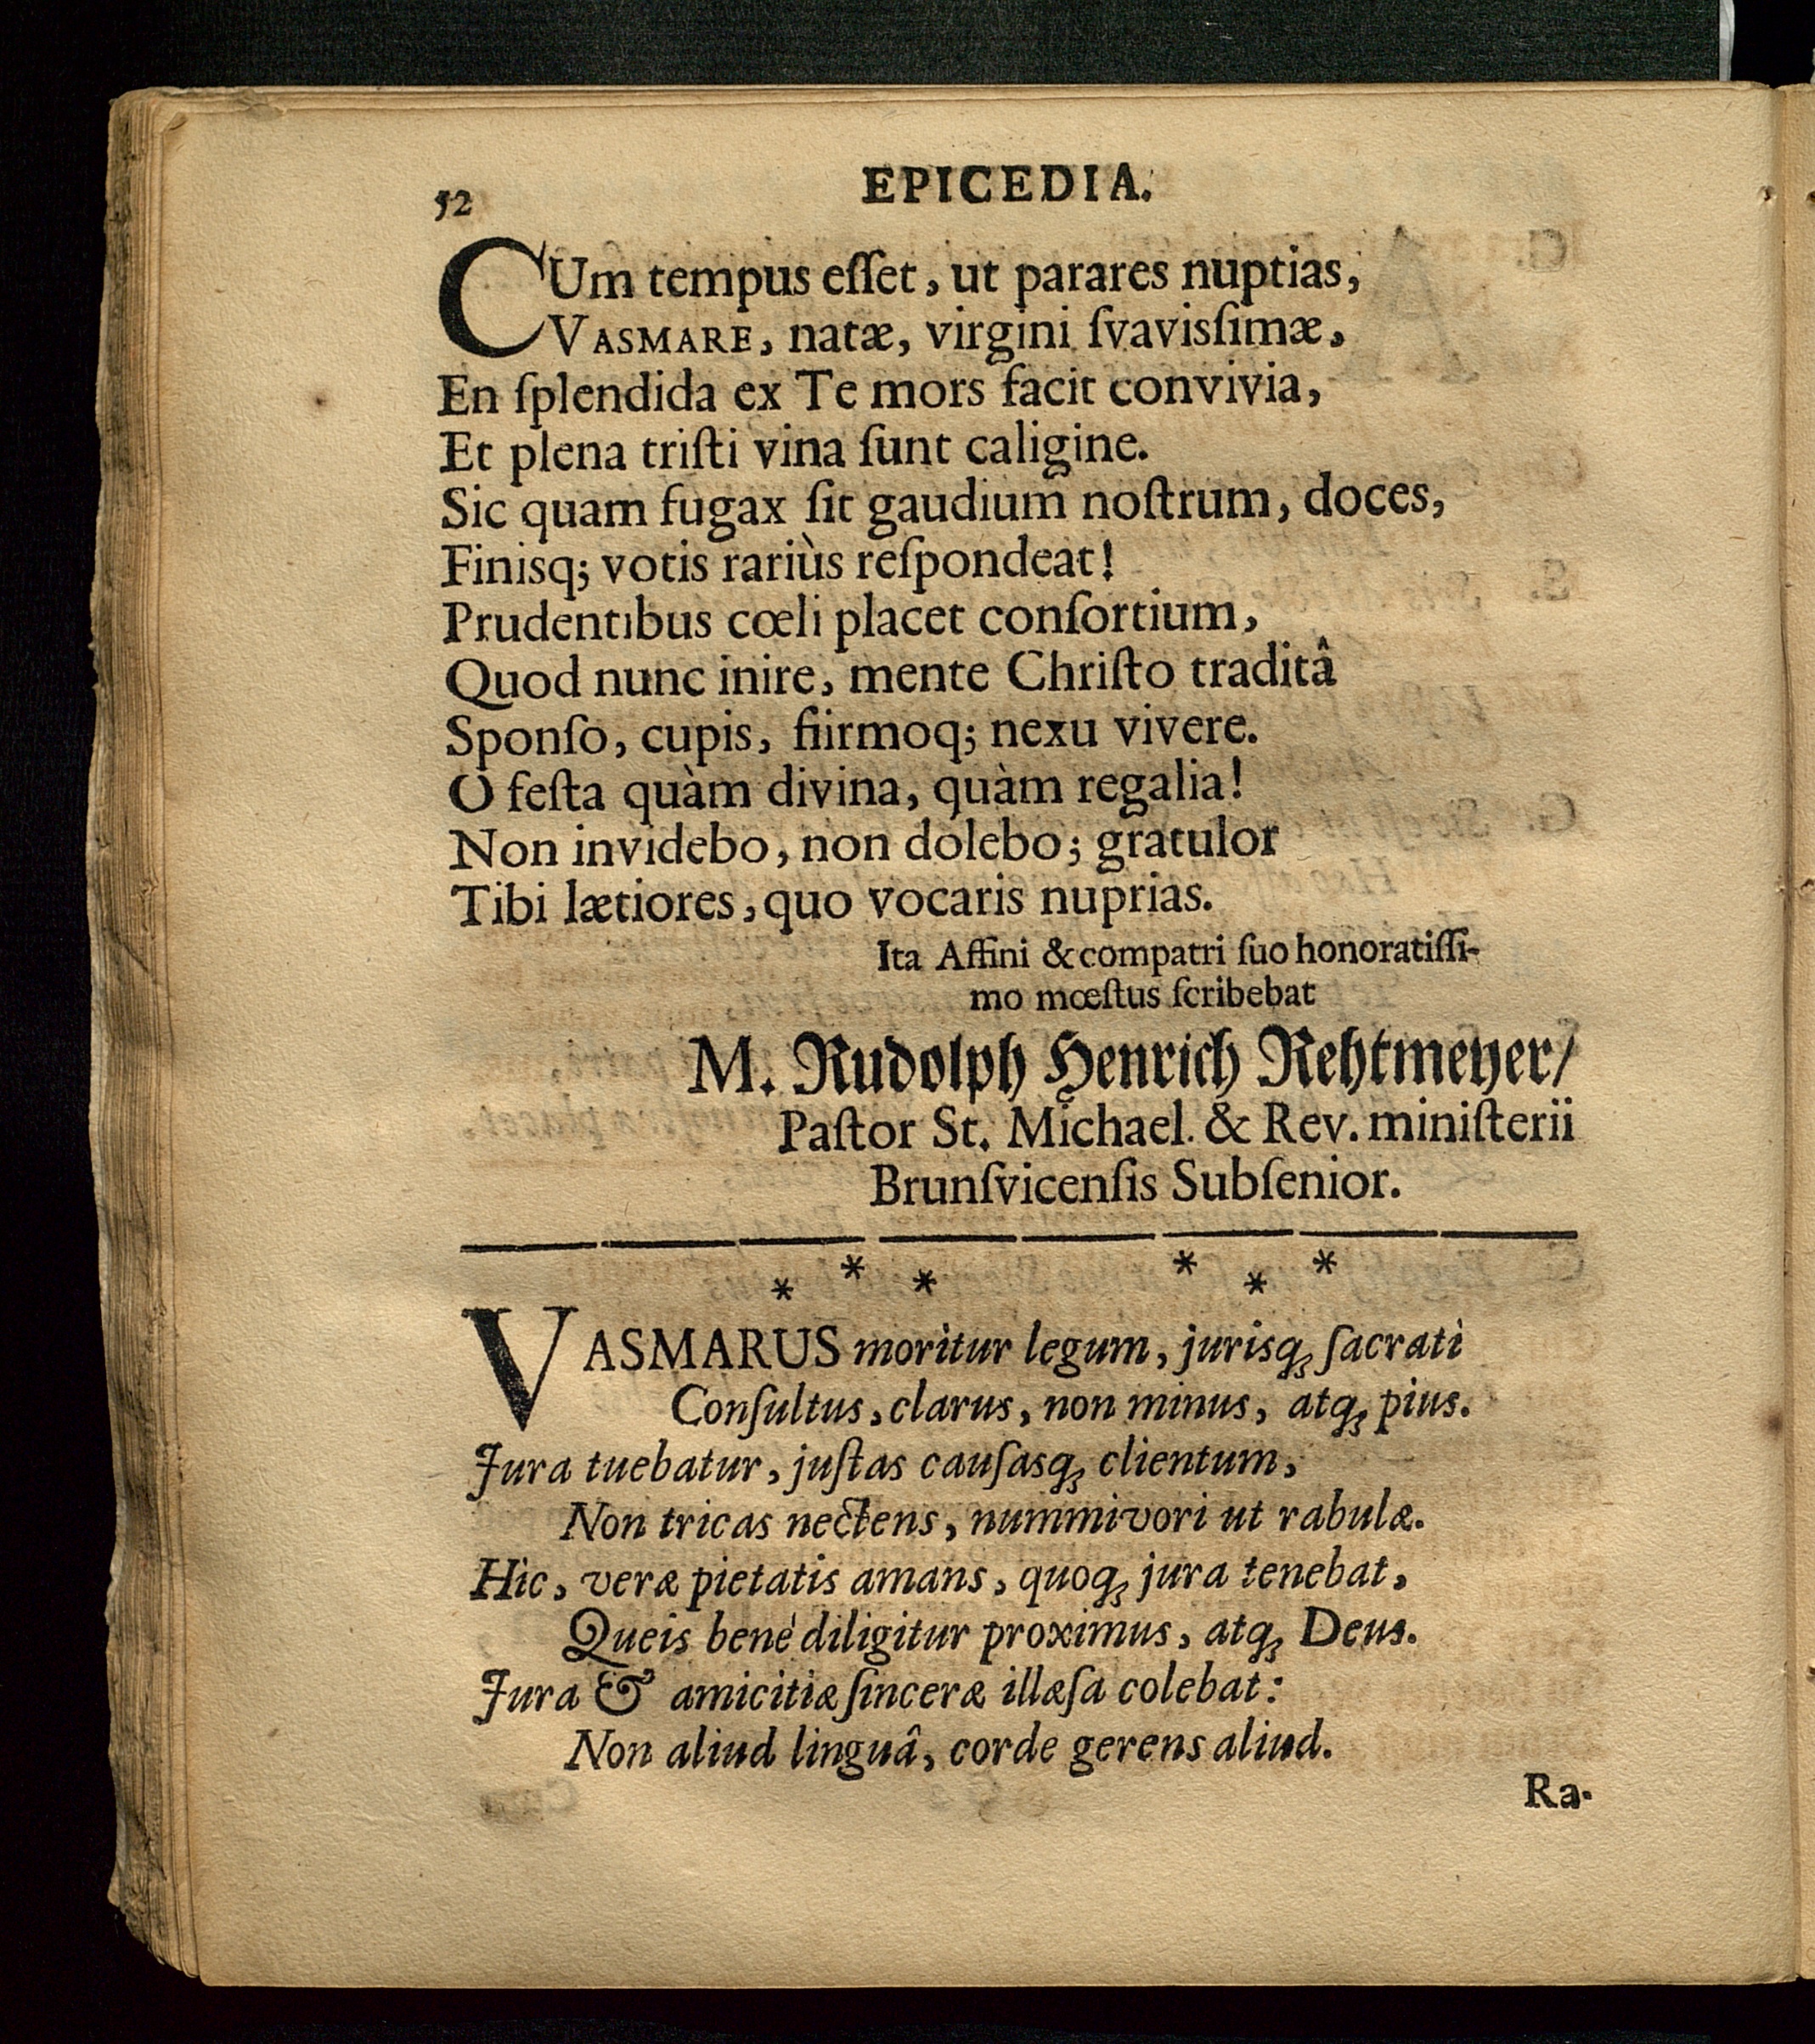 52
EPICEDIA.
CUm tempus eſſet, ut parares nuptias,
VASMARE, natæ, virgini ſvavisſimæ,
En ſplendida ex Te mors facit convivia,
Et plena triſti vina ſunt caligine.
Sic quam fugax ſit gaudium noſtrum, doces,
Finisq; votis rariùs reſpondeat!
Prudentibus cœli placet conſortium,
Quod nunc inire, mente Chriſto traditâ
Sponſo, cupis, fiirmoq; nexu vivere.
O feſta quàm divina, quàm regalia!
Non invidebo, non dolebo; gratulor
Tibi lætiores, quo vocaris nuprias.
Ita Affini & compatri ſuo honoratiſſi-
mo mœſtus ſcribebat
M. Rudolph Henrich Rehtmeyer/
Paſtor St. Michael. & Rev. miniſterii
Brunſvicenſis Subſenior.
* * * * * *
VASMARUS moritur legum, jurisq; ſacrati
Conſultus, clarus, non minus, atq; pius.
Jura tuebatur, juſtas cauſasq; clientum,
Non tricas nectens, nummivori ut rabulæ.
Hic, veræ pietatis amans, quoq; jura tenebat,
Queis benè diligitur proximus, atq; Deus.
Jura & amicitiæ ſinceræ illæſa colebat:
Non aliud linguâ, corde gerens aliud.
Ra-